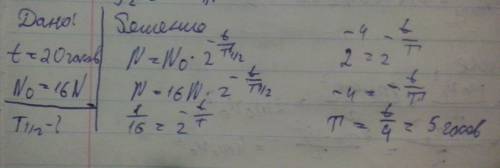 Дано
t = 20 часов
N₀ = 16N
T₁/₂ - ?
Решение
N = N₀ · 2^(-t/T₁/₂)
N = 16N · 2^(-t/T₁/₂)
1/16 = 2^(-t/T)
2^(-4) = 2^(-t/T)
-4 = -t/T
T = t/4 = 5 часов